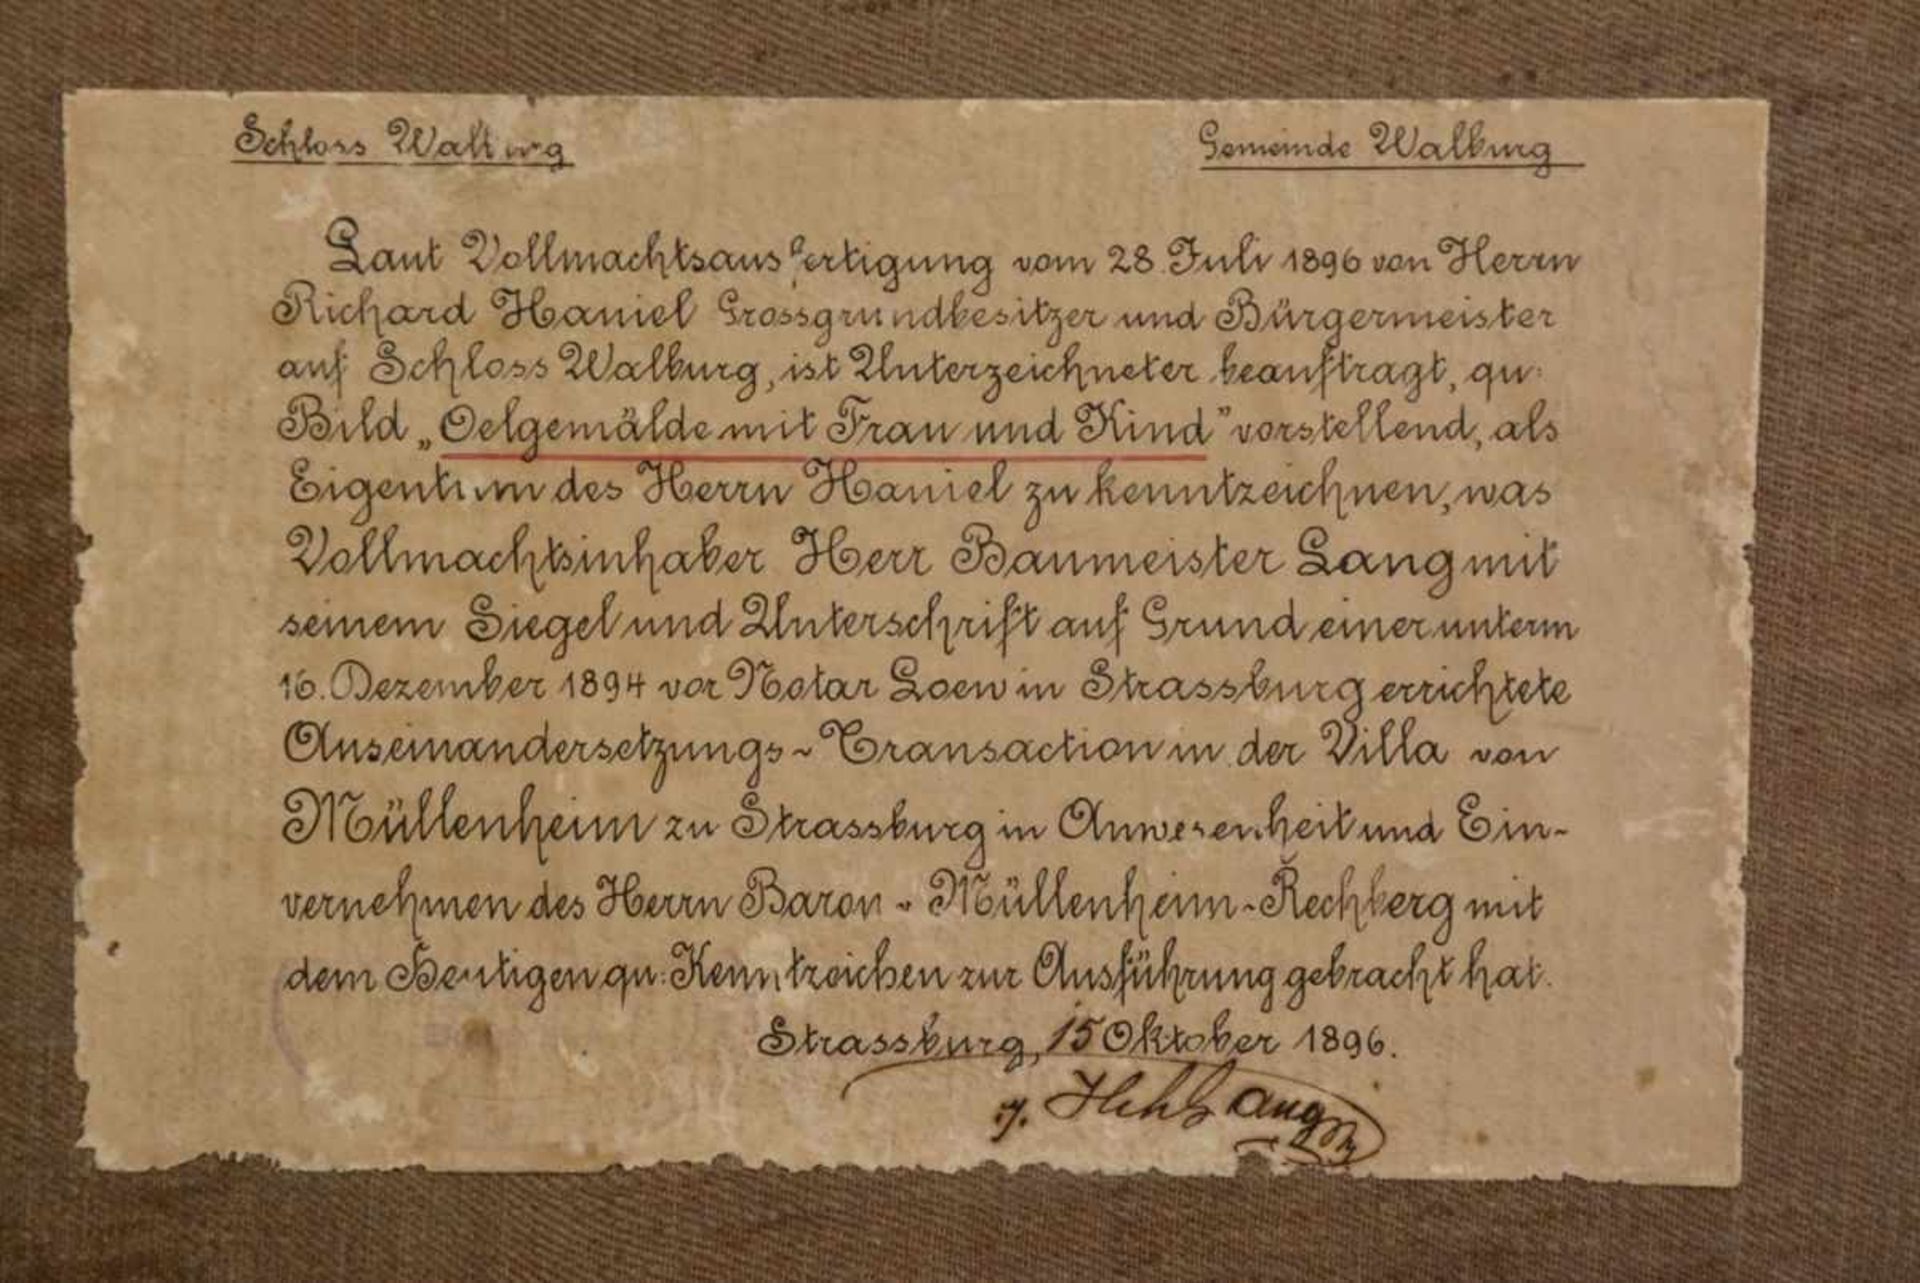 Schloss Walburg
Gemeinde Walburg
Laut Vollmachtsausfertigung vom 28. Juli 1896 von Herrn
Richard Haniel Grossgrundbesitzer und Bürgermeister
auf Schloss Walburg, ist Unterzeichneter beauftragt, qu:
Bild „Oelgemälde mit Frau und Kind" vorstellend, als
Eigentum des Herrn Haniel zu kenntzeichnen, was
Vollmachtsinhaber Herr Baumeister Lang mit
seinem Siegel und Unterschrift auf Grund einer unterm
16. Dezember 1894 vor Notar Loew in Strassburg errichtete
Auseinandersetzungs-Transaction in der Villa von
Müllenheim zu Strassburg in Anwesenheit und Ein-
vernehmen des Herrn Baron - Müllenheim-Rechberg mit
dem Heutigen qu: Kenntzeichen zur Ausführung gebracht hat.
Strassburg, 15 Oktober 1896.
Lang